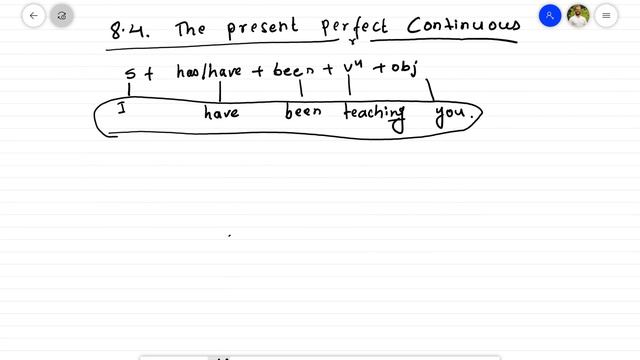 8.4. The present perfect Continuous
S + has/have + been + v⁴ + obj
I have been teaching you.